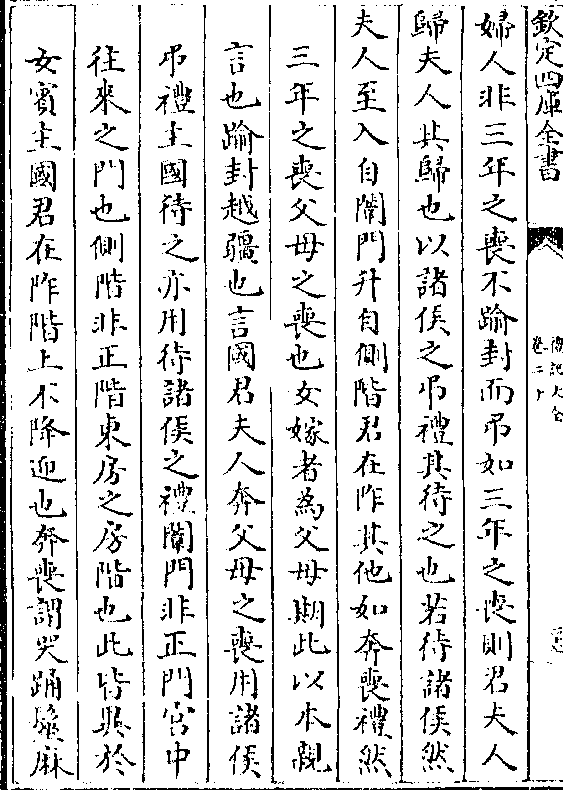 欽定四庫全書
禮記大全
卷二十
婦人非三年之喪不踰封而弔如三年之喪則君夫人
歸夫人其歸也以諸侯之弔禮其待之也若待諸侯然
夫人至入自闈門升自側階君在阼其他如奔喪禮然
三年之喪父母之喪也女嫁者為父母期此以本親
言也踰封越疆也言國君夫人奔父母之喪用諸侯
弔禮主國待之亦用待諸侯之禮闈門非正門宮中
往來之門也側階非正階東房之房階也此皆異於
女賓主國君在阼階上不降迎也奔喪謂哭踊髽麻